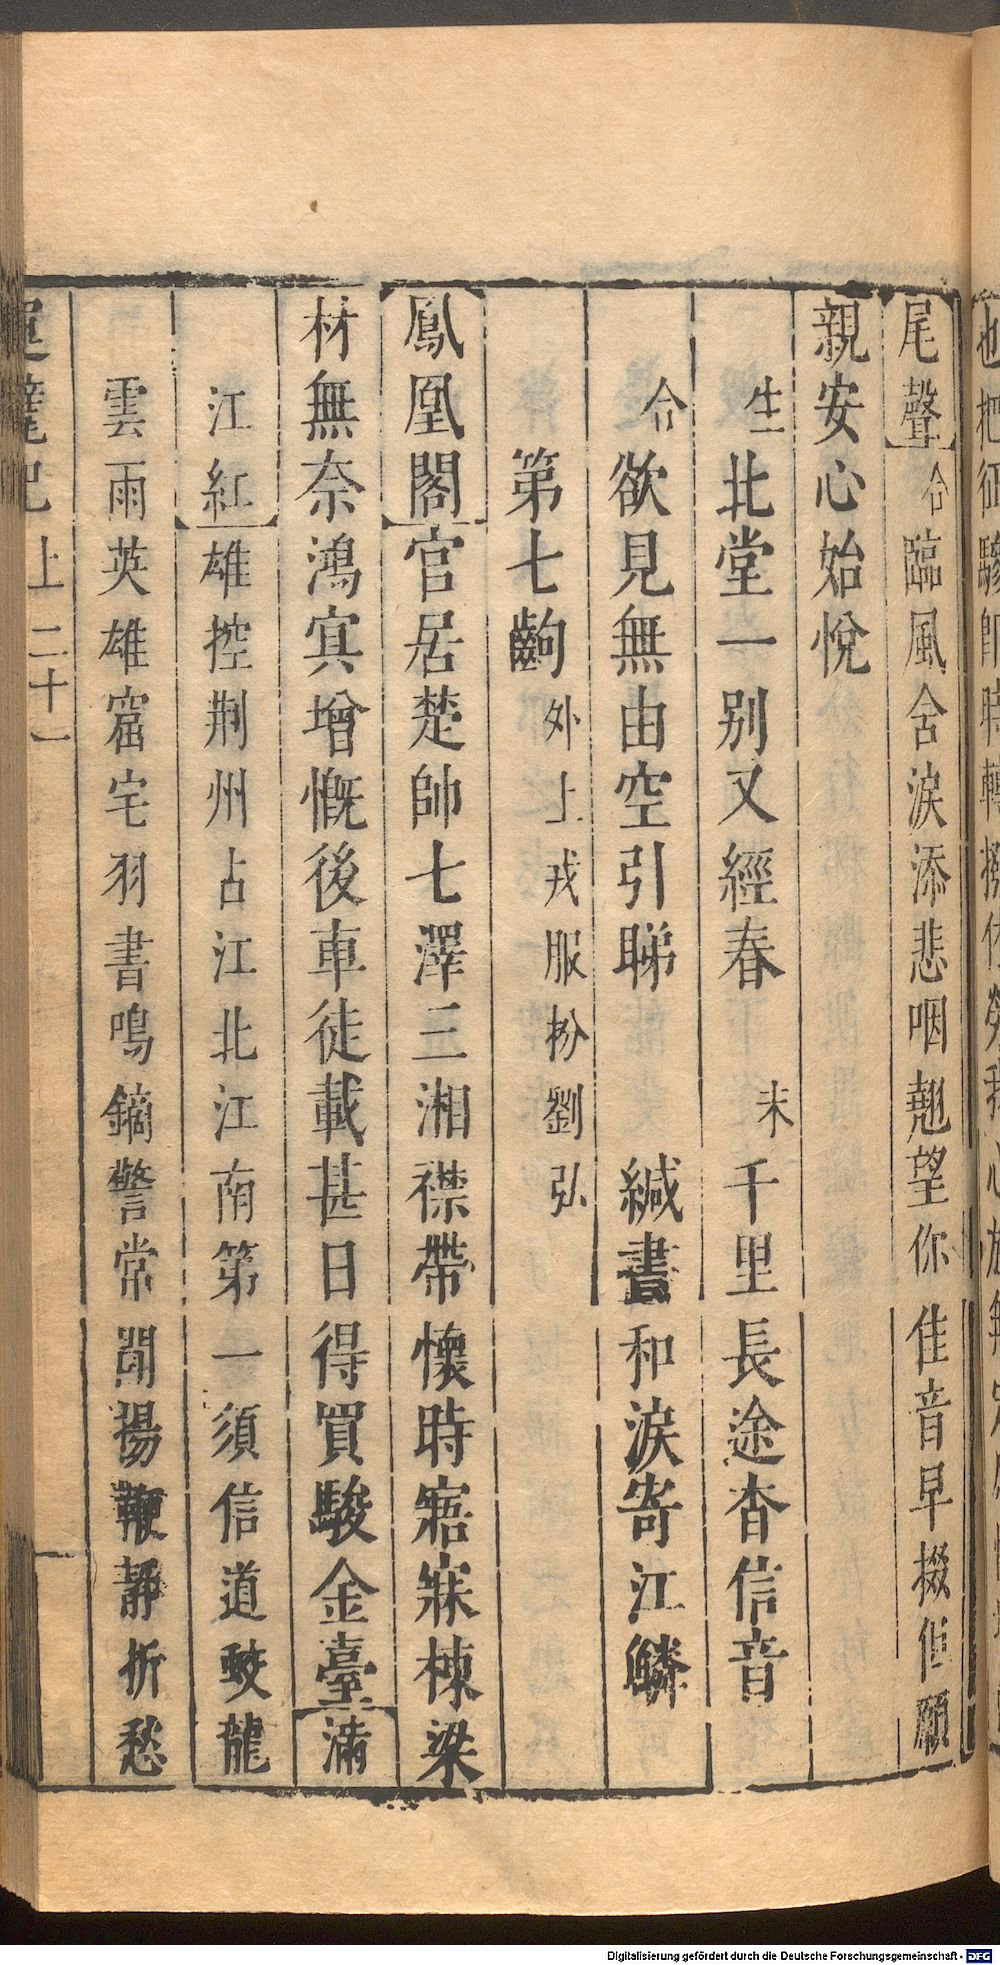 尾聲合臨風含淚添悲咽翹望你佳音早掇但願
親安心始悅
生北堂一別又經春 末千里長途杳信音
合欲見無由空引睇 緘書和淚寄江鱗
第七齣外上戎服扮劉弘
鳳凰閣官居楚帥七澤三湘襟帶懷時寤寐棟梁
材無奈鴻寘增慨後車徒載甚日得買駿金臺滿
江紅雄控荆州占江北江南第一須信道蛟龍
雲雨英雄窟宅羽書鳴鏑警常聞揚鞭靜折愁
運甓記 上 二十一
Digitalisierung gefördert durch die Deutsche Forschungsgemeinschaft - DFG